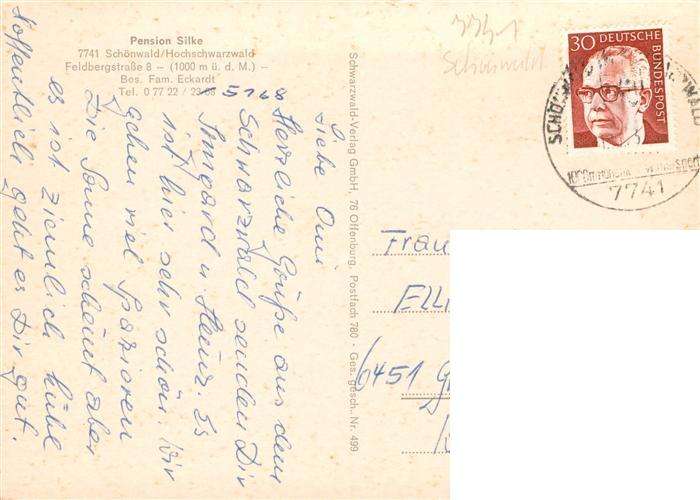 Pension Silke
7741 Schönwald/Hochschwarzwald
Feldbergstraße 8 – (1000 m ü. d. M.) –
Bes. Fam. Eckardt
Tel. 0 77 22 /
5168
Liebe Omi
Herzliche Grüße aus dem
Schwarzwald senden Dir
Irmgard u. Heinz. Es
ist hier sehr schön. Wir
gehen viel spazieren
Die Sonne scheint aber
es ist ziemlich kühl
Hoffentlich geht es Dir gut.
Schwarzwald-Verlag GmbH, 76 Offenburg, Postfach 780 · Ges. gesch. Nr. 499
7741
Schönwald
30 DEUTSCHE BUNDESPOST
7741
Frau
Elli
6451